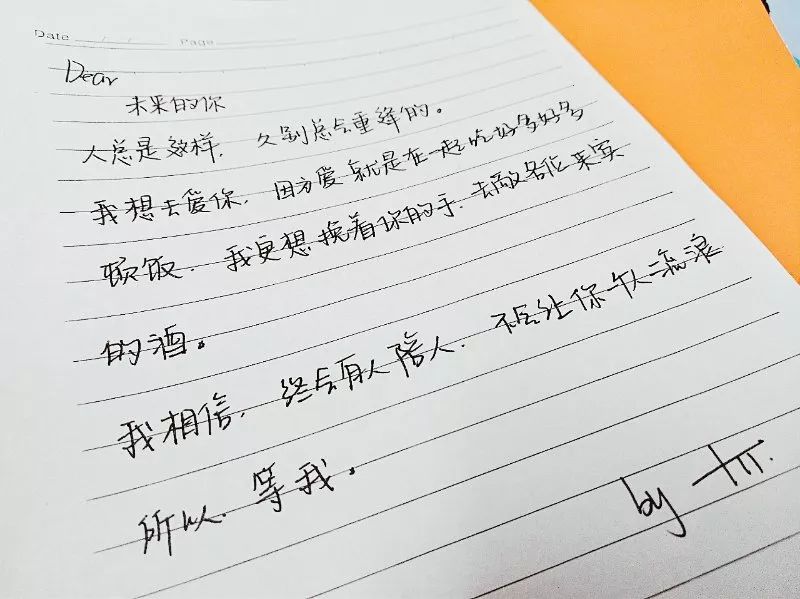 Date / / Page
Dear
未来的你
人总是这样，久别总会重逢的。
我想去爱你，因为爱就是在一起吃好多好多
顿饭，我更想挽着你的手，去敬各位来宾
的酒。
我相信，终会有人陪人，不会让你一人流浪
所以，等我。
by